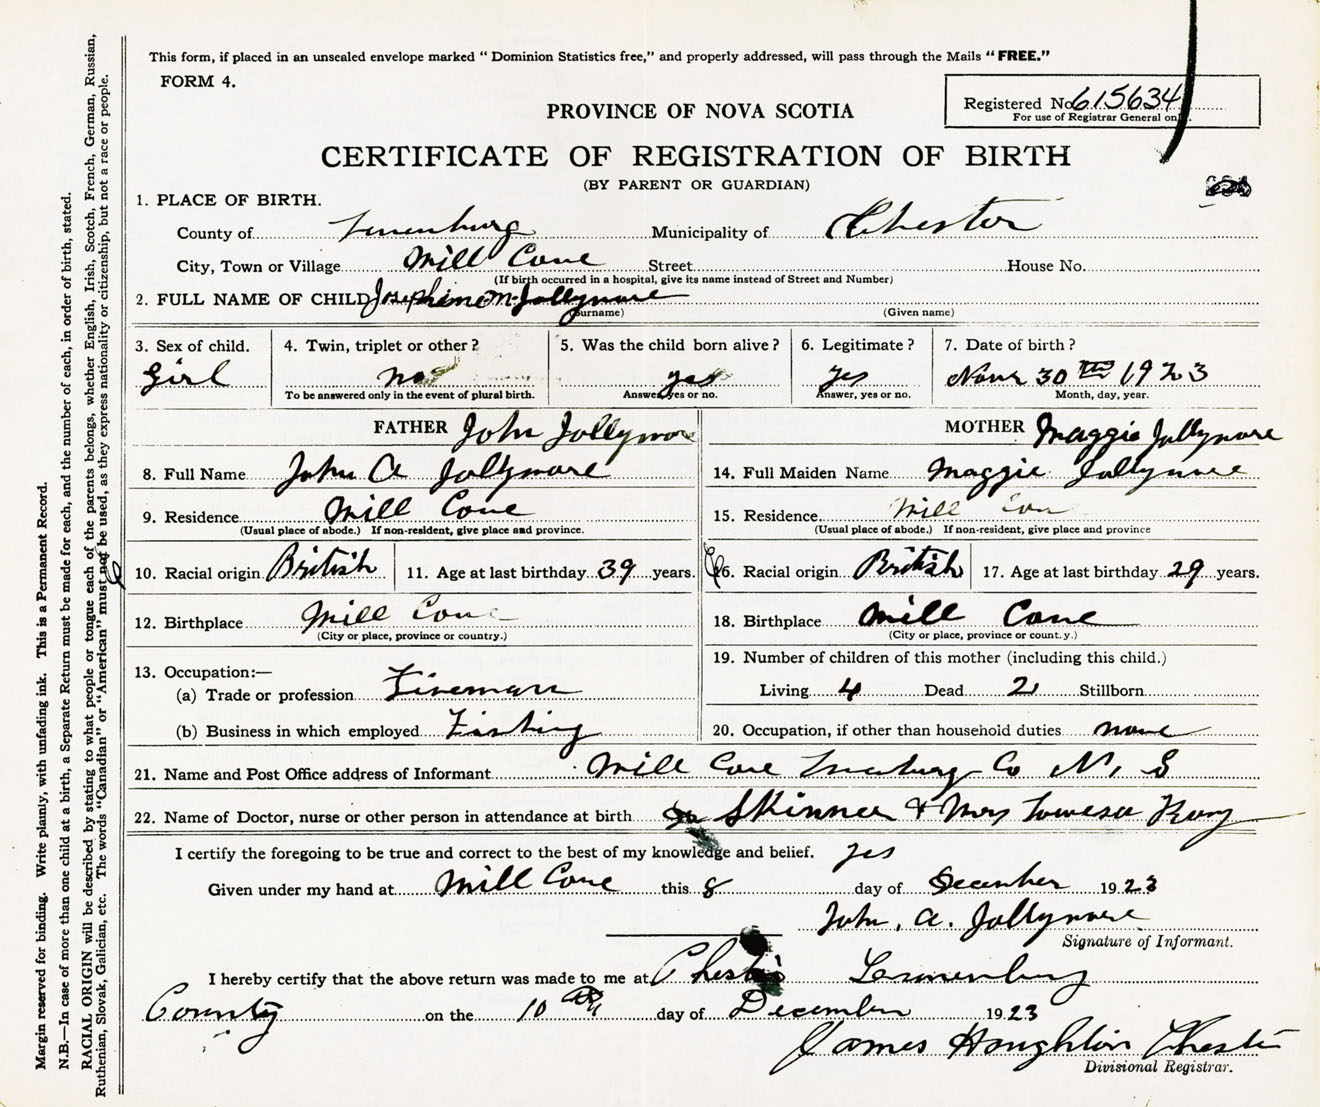 This form, if placed in an unsealed envelope marked " Dominion Statistics free," and properly addressed, will pass through the Mails " FREE."
FORM 4.
Registered No. 615634
For use of Registrar General only.
PROVINCE OF NOVA SCOTIA
CERTIFICATE OF REGISTRATION OF BIRTH
(BY PARENT OR GUARDIAN)
1. PLACE OF BIRTH.
County of Lunenburg Municipality of Chester
City, Town or Village Mill Cove Street House No.
(If birth occurred in a hospital, give its name instead of Street and Number)
2. FULL NAME OF CHILD Josephine M. Jollymore
(Surname) (Given name)
3. Sex of child. 4. Twin, triplet or other? 5. Was the child born alive? 6. Legitimate? 7. Date of birth?
Girl no yes yes Novr 30 th 1923
To be answered only in the event of plural birth. Answer, yes or no. Answer, yes or no. Month, day, year.
FATHER John Jollymore MOTHER Maggie Jollymore
8. Full Name John A Jollymore 14. Full Maiden Name Maggie Jollymore
9. Residence Mill Cove 15. Residence Mill Cov
(Usual place of abode.) If non-resident, give place and province. (Usual place of abode.) If non-resident, give place and province
10. Racial origin British 11. Age at last birthday 39 years. 16. Racial origin British 17. Age at last birthday 29 years.
12. Birthplace Mill Cove 18. Birthplace Mill Cove
(City or place, province or country.) (City or place, province or county.)
13. Occupation:— 19. Number of children of this mother (including this child.)
(a) Trade or profession Living 4 Dead 2 Stillborn
(b) Business in which employed Fishing 20. Occupation, if other than household duties none
21. Name and Post Office address of Informant Mill Cove Lunenburg Co N. S
22. Name of Doctor, nurse or other person in attendance at birth Dr Skinner & Mrs
I certify the foregoing to be true and correct to the best of my knowledge and belief. yes
Given under my hand at Mill Cove this 8 day of December 1923
John. A. Jollymore
Signature of Informant.
I hereby certify that the above return was made to me at Chester Lunenburg
County on the 10 th day of December 1923
James Houghton Chester
Divisional Registrar.
Margin reserved for binding. Write plainly, with unfading ink. This is a Permanent Record.
N.B.—In case of more than one child at a birth, a Separate Return must be made for each, and the number of each, in order of birth, stated.
RACIAL ORIGIN will be described by stating to what people or tongue each of the parents belongs, whether English, Irish, Scotch, French, German, Russian,
Ruthenian, Slovak, Galician, etc. The words "Canadian" or "American" must not be used, as they express nationality or citizenship, but not a race or people.